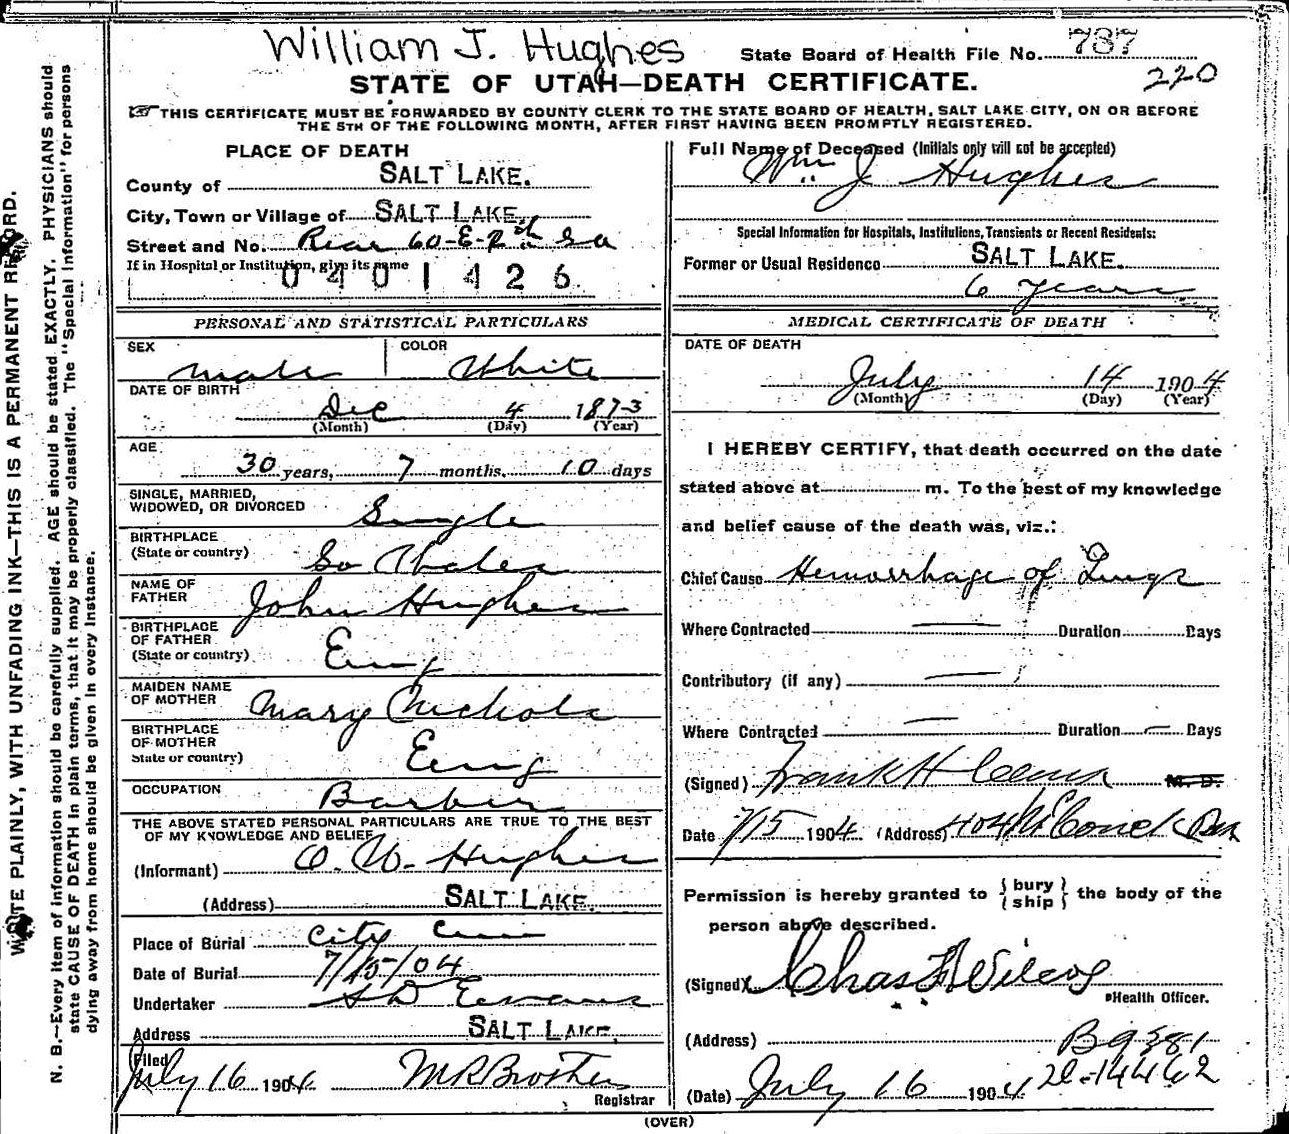 William J. Hughes
State Board of Health File No. 787
220
STATE OF UTAH—DEATH CERTIFICATE.
THIS CERTIFICATE MUST BE FORWARDED BY COUNTY CLERK TO THE STATE BOARD OF HEALTH, SALT LAKE CITY, ON OR BEFORE
THE 5TH OF THE FOLLOWING MONTH, AFTER FIRST HAVING BEEN PROMPTLY REGISTERED.
PLACE OF DEATH
County of SALT LAKE.
City, Town or Village of SALT LAKE.
Street and No. Rear 60-E-2nd So
If in Hospital or Institution, give its name
0401426
PERSONAL AND STATISTICAL PARTICULARS
SEX Male COLOR White
DATE OF BIRTH
Dec 4 1873
(Month) (Day) (Year)
AGE
30 years, 7 months, 10 days
SINGLE, MARRIED,
WIDOWED, OR DIVORCED Single
BIRTHPLACE
(State or country) So Wales
NAME OF
FATHER John Hughes
BIRTHPLACE
OF FATHER
(State or country) Eng
MAIDEN NAME
OF MOTHER Mary Nichols
BIRTHPLACE
OF MOTHER
State or country) Eng
OCCUPATION Barber
THE ABOVE STATED PERSONAL PARTICULARS ARE TRUE TO THE BEST
OF MY KNOWLEDGE AND BELIEF
(Informant) O. W. Hughes
(Address) SALT LAKE.
Place of Burial City Cem
Date of Burial 7/15/04
Undertaker S D Evans
Address SALT LAKE.
Filed
July 16 1904 M R Brothers
Registrar
Full Name of Deceased (Initials only will not be accepted)
Wm J Hughes
Special Information for Hospitals, Institutions, Transients or Recent Residents:
Former or Usual Residence SALT LAKE.
6 years
MEDICAL CERTIFICATE OF DEATH
DATE OF DEATH
July 14 1904
(Month) (Day) (Year)
I HEREBY CERTIFY, that death occurred on the date
stated above at m. To the best of my knowledge
and belief cause of the death was, viz.:
Chief Cause Hemorrhage of Lungs
Where Contracted — Duration Days
Contributory (if any) —
Where Contracted — Duration — Days
(Signed) Frank H M. D.
Date 7/15 1904 (Address) 404
Permission is hereby granted to {bury
ship} the body of the
person above described.
(Signed) Chas F Wilcox
Health Officer.
(Address) B9381
(Date) July 16 1904 2L-14462
(OVER)
WRITE PLAINLY, WITH UNFADING INK—THIS IS A PERMANENT RECORD.
N. B.—Every item of information should be carefully supplied. AGE should be stated EXACTLY. PHYSICIANS should
state CAUSE OF DEATH in plain terms, that it may be properly classified. The "Special Information" for persons
dying away from home should be given in every instance.